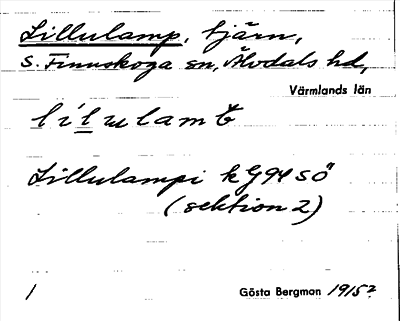 Lillulamp, tjärn,
S. Finnskoga sn, Älvdals hd,
Värmlands län
Lillulampi k G94 SÖ
(sektion 2)
1 Gösta Bergman 1915?